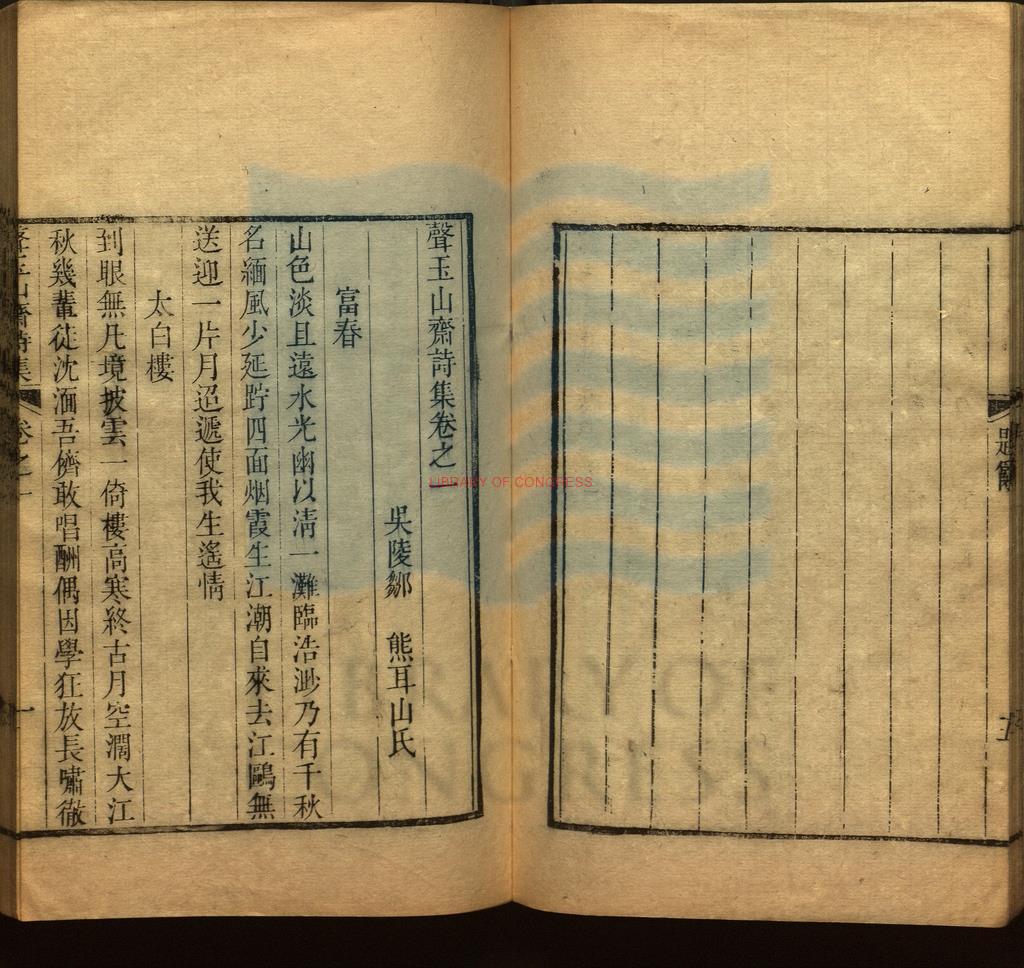 聲玉山齋詩集卷之一
吳陵鄒 熊耳山氏
富春
山色淡且遠水光幽以清一灘臨浩渺乃有千秋
名緬風少延跱四面烟霞生江潮自來去江鷗無
送迎一片月迢遞使我生遙情
太白樓
到眼無凡境披雲一倚樓高寒終古月空濶大江
秋幾輩徒沈湎吾儕敢唱酬偶因學狂放長嘯徹
聲玉山齋詩集 卷之一 一
LIBRARY OF CONGRESS